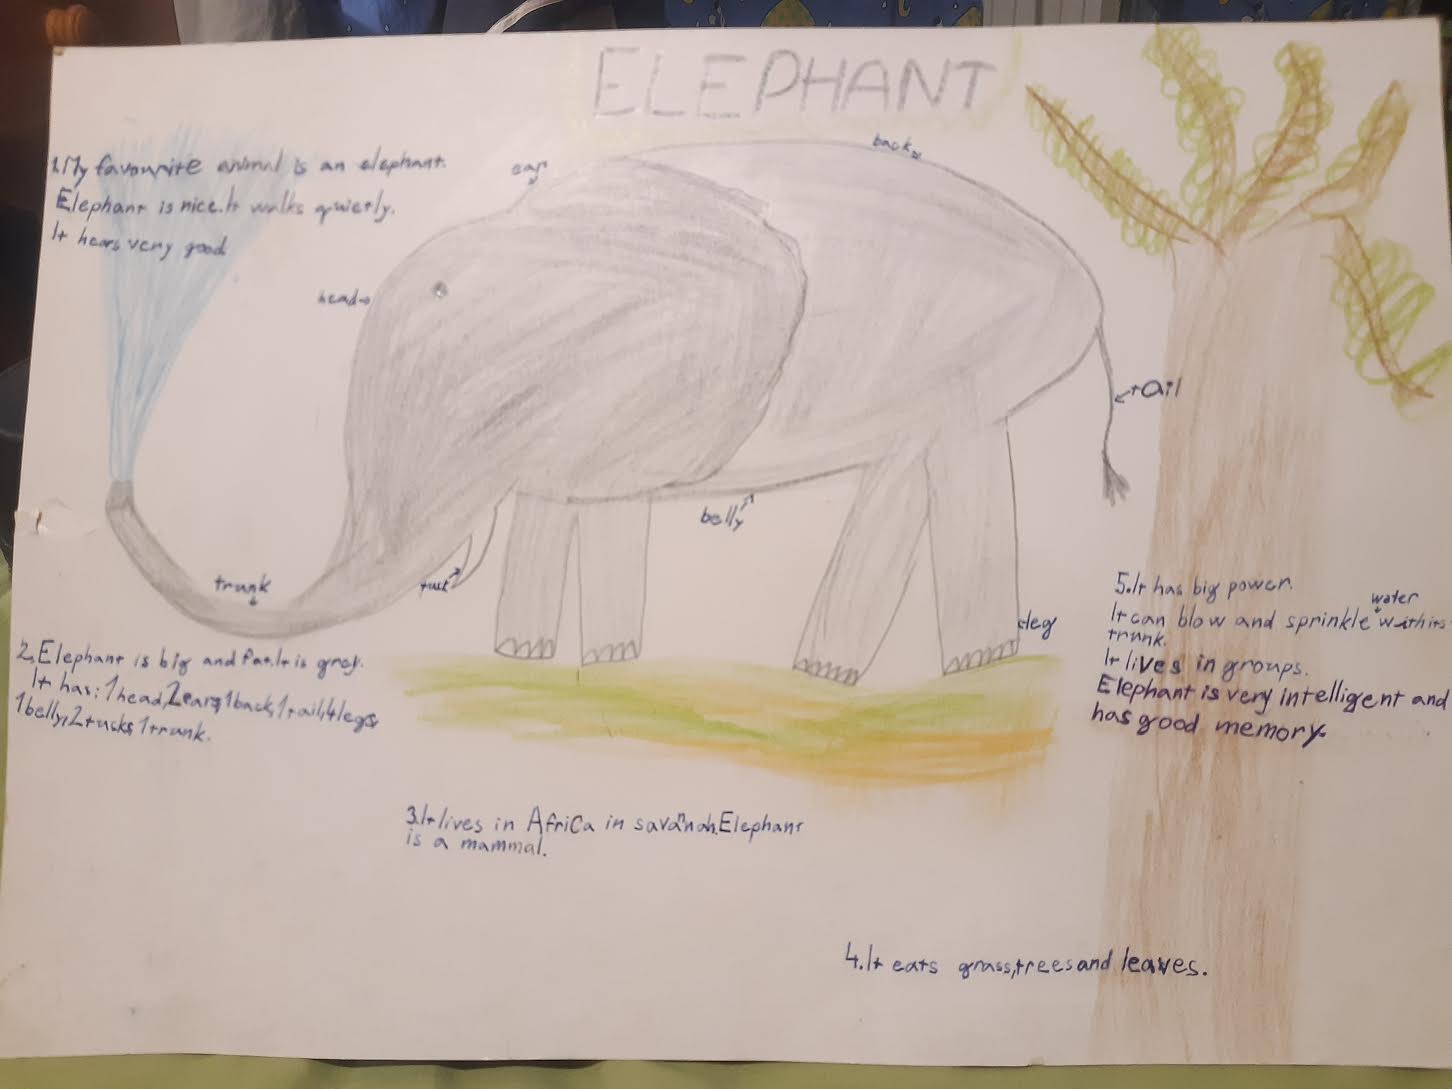 ELEPHANT
1.My favourite animal is an elephant.
Elephant is nice.It walks quietly.
It hears very good
ear
back
head
tail
belly
trunk
tusk
leg
2.Elephant is big and fat.It is grey.
It has: 1head,2ears,1back,1tail,4legs,
1belly,2tucks,1trunk.
3.It lives in Africa in savannah.Elephant
is a mammal.
4.It eats grass,trees and leaves.
5.It has big power.
It can blow and sprinkle water with its
trunk.
It lives in groups.
Elephant is very intelligent and
has good memory.